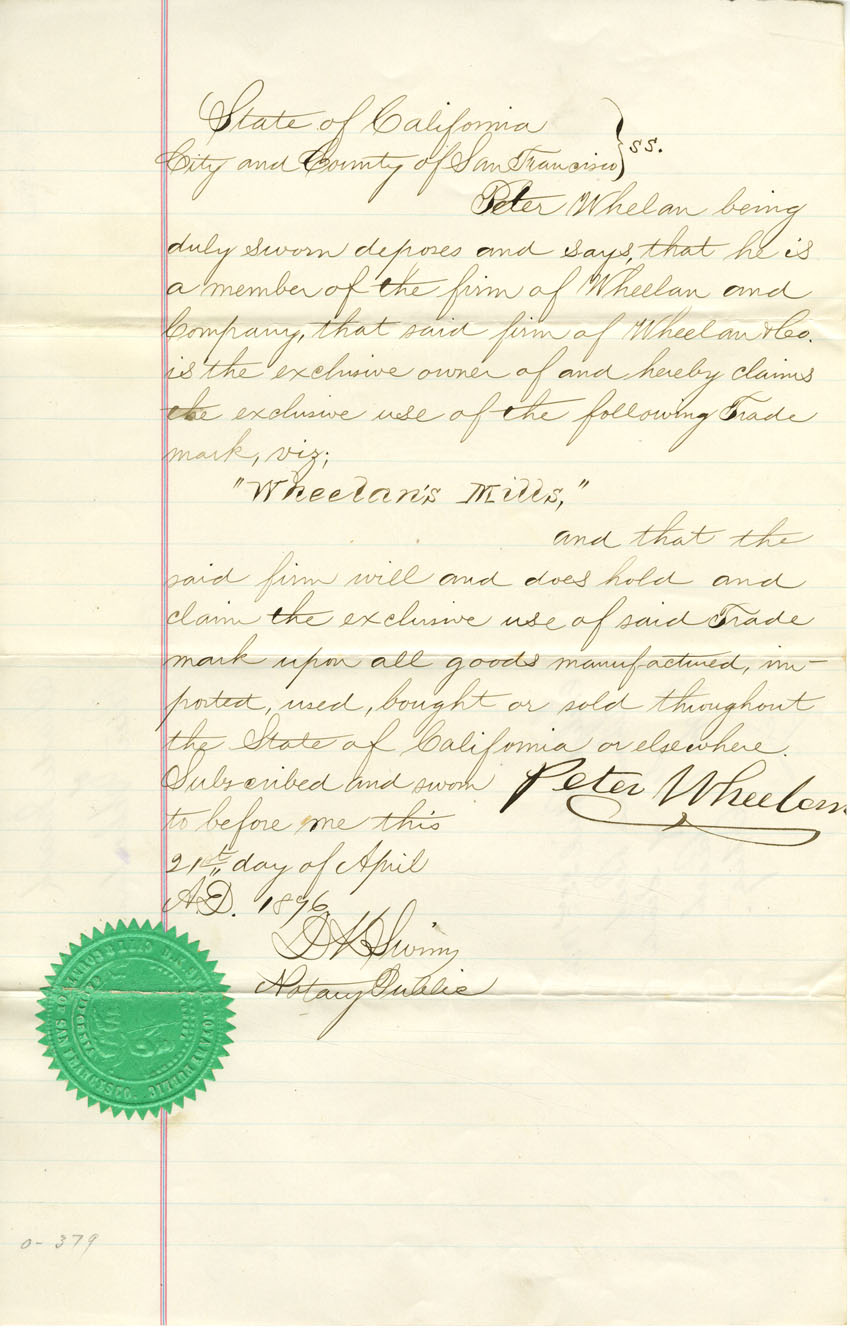 State of California
City and County of San Francisco } ss.
Peter Whelan being
duly sworn deposes and says, that he is
a member of the firm of Wheelan and
Company, that said firm of Wheelan & Co.
is the exclusive owner of and hereby claims
the exclusive use of the following Trade
mark, viz;
"Wheelan's Mills,"
and that the
said firm will and does hold and
claim the exclusive use of said Trade
mark upon all goods manufactured, im-
ported, used, bought or sold throughout
the State of California or elsewhere.
Subscribed and sworn Peter Wheelan
to before me this
21st day of April
A.D. 1876
Notary Public
NOTARY PUBLIC CITY & COUNTY OF SAN FRANCISCO.
CALIFORNIA
0-379